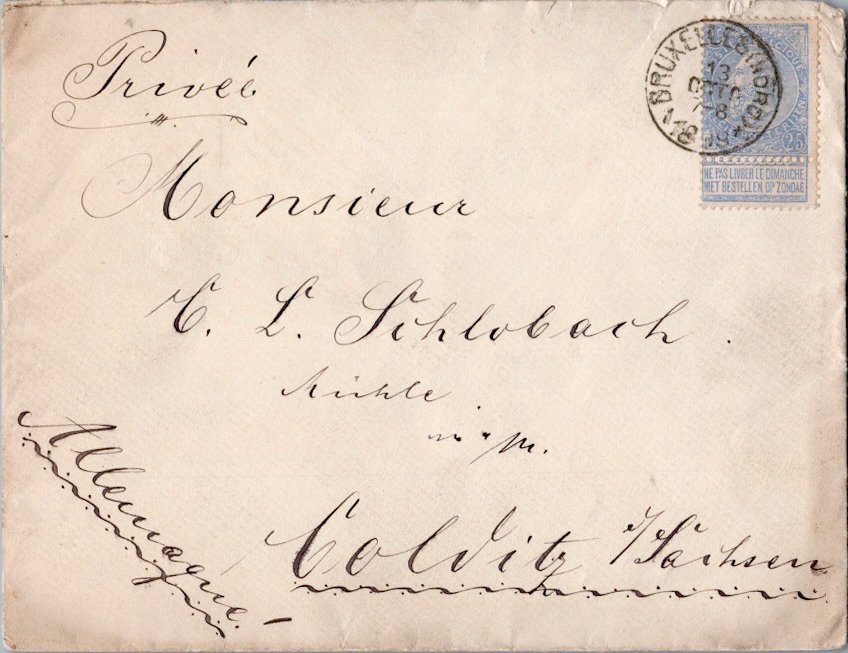 Privée
BRUXELLES (NORD)
13
OCTO
7-8
1899
25
NE PAS LIVRER LE DIMANCHE
NIET BESTELLEN OP ZONDAG
Monsieur
C. L. Schlobach.
Mühle
Colditz i/Sachsen
Allemagne.